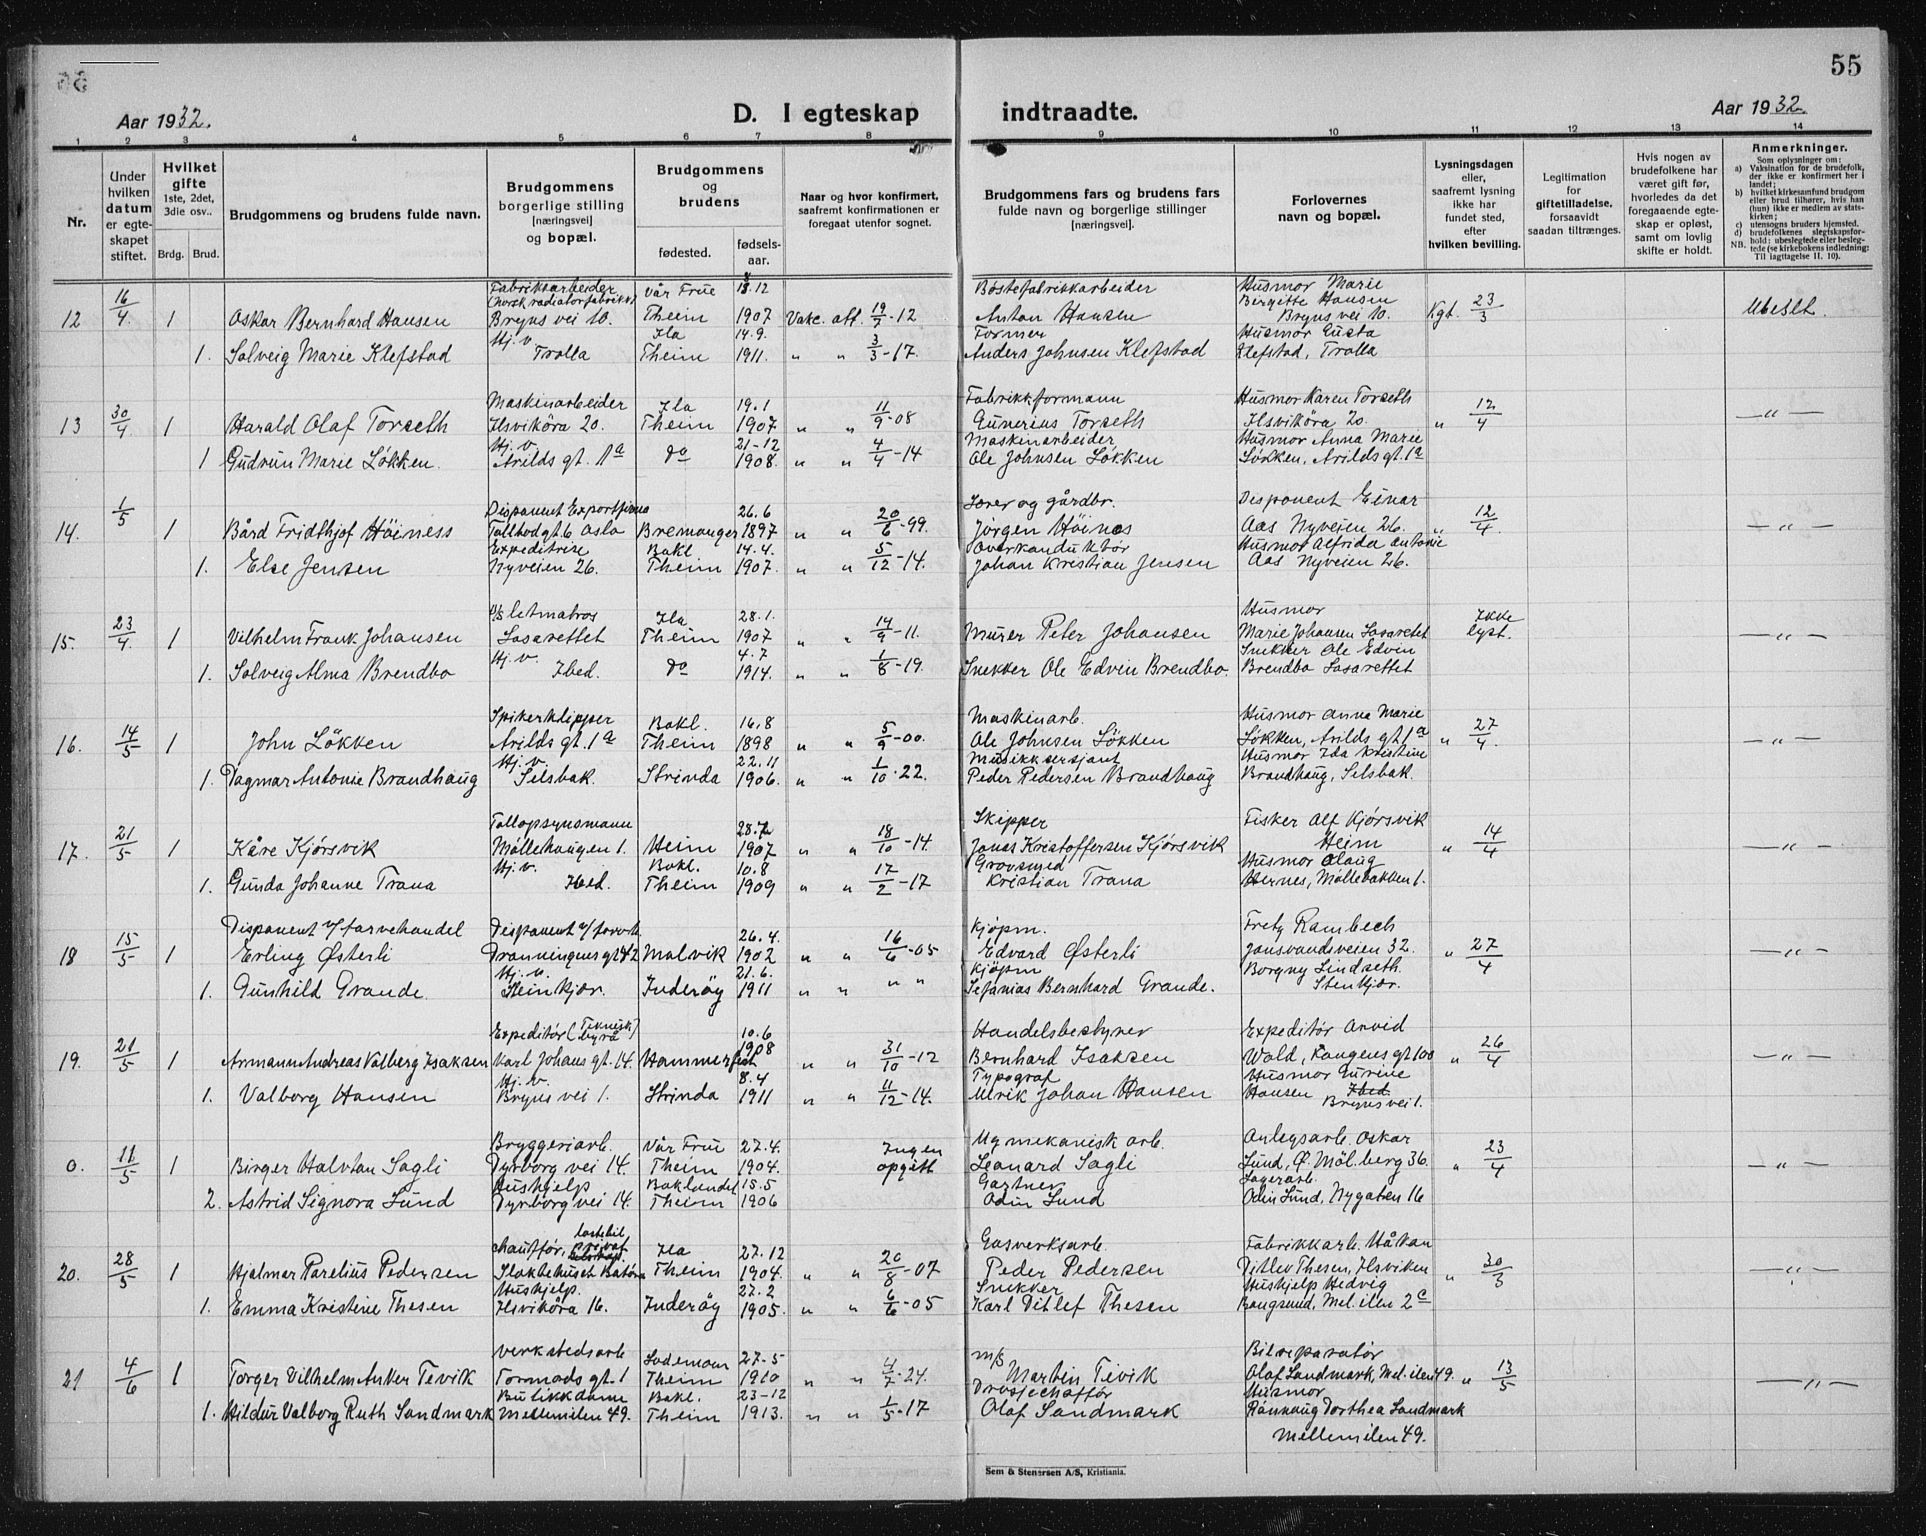 55
Aar 1932.
D. I egteskap indtraadte.
Aar 1932.
1 2 3 4 5 6 7 8 9 10 11 12 13 14
Nr.
Under hvilken datum er egteskapet stiftet.
Hvilket gifte 1ste, 2det, 3die osv..
Brdg. Brud.
Brudgommens og brudens fulde navn.
Brudgommens borgerlige stilling [næringsvei] og bopæl.
Brudgommens og brudens
fødested. fødselsaar.
Naar og hvor konfirmert, saafremt konfirmationen er foregaat utenfor sognet.
Brudgommens fars og brudens fars fulde navn og borgerlige stillinger [næringsvei].
Forlovernes navn og bopæl.
Lysningsdagen eller, saafremt lysning ikke har fundet sted, efter hvilken bevilling.
Legitimation for giftetilladelse, forsaavidt saadan tiltrænges.
Hvis nogen av brudefolkene har været gift før, hvorledes da det foregaaende egteskap er opløst, samt om lovlig skifte er holdt.
Anmerkninger.
Som oplysninger om:
a) Vaksination for de brudefolk, der ikke er konfirmert her i landet;
b) hvilket kirkesamfund brudgom eller brud tilhører, hvis han (hun) ikke er medlem av statskirken;
c) utensogns bruders hjemsted.
d) brudefolkenes slegtskapsforhold: ubeslegtede eller beslegtede (se kirkebokens indledning:
NB. Til iagttagelse II. 10).
Fabrikkarbeider Vår Frue 13.12 Böstefabrikkarbeider Husmor Marie
(norsk radiatorfabrikk) Birgitte Hansen
12 16/4 1 Oskar Bernhard Hansen Bryns vei 10. Theim 1907 Vakc. att. 19/7-12 Anton Hansen Bryns vei 10. Kgt. 23/3 Ubeslt.
Hj. v. Ila 14.9. Former Husmor Gusta
1. Solveig Marie Klefstad Trolla Theim 1911. " " 3/3-17. Anders Johnsen Klefstad Klefstad, Trolla
Maskinarbeider Ila 19.1 Fabrikkformann Husmor Karen Torseth
13 30/4 1 Harald Olaf Torseth Ilsviköra 20. Theim 1907 " " 11/9-08 Gunerius Torseth Ilsviköra 20. " 12/4 —"—
Hj. v. 21-12 Maskinarbeider Husmor Anna Marie
1 Gudrun Marie Løkken. Arilds gt. 1a do 1908. " " 4/4-14 Ole Johnsen Løkken Løkken, Arilds gt. 1a
Disponent Exportfirma 26.6 Lærer og gårdbr. Disponent Einar
14. 1/5 1 Bård Fridthjof Höiness Tollbodgt. 6 Oslo Bremanger 1897 " " 20/6-99. Jörgen Höines Aas Nyveien 26. " 12/4. —"—
Expeditrise Bakl. 14.4. Overkonduktör Husmor Alfrida Antonie
1. Else Jensen Nyveien 26. Theim 1907. " " 5/12-14. Johan Kristian Jensen Aas Nyveien 26.
Ila 28.1. Husmor Ikke
15. 23/4. 1 Vilhelm Frank Johansen Lasarettet Theim 1907 " " 14/9-11. Murer Peter Johansen Marie Johansen Lasarettet lyst. —"—
Hj. v. 4.7 Snekker Ole Edvin
1. Solveig Alma Brendbo Ibed. do 1914. " " 1/8-19. Snekker Ole Edvin Brendbo. Brendbo Lasarettet
Spikerklipper Bakl. 16.8 Maskinarb. Husmor Anna Marie
16. 14/5 1 John Løkken Arilds gt. 1a Theim 1898 " " 5/9-00. Ole Johnsen Løkken Løkken, Arilds gt. 1a " 27/4. —"—
Hj. v. 22.11 Musikksersjant Husmor Ida Kristine
1. Dagmar Antonie Brandhaug Selsbak. Strinda 1906. " " 1/10-22. Peder Pedersen Brandhaug Brandhaug, Selsbak.
Tollopsynsmann 28.7 Skipper Fisker Alf Kjørsvik
17. 21/5 1 Kåre Kjørsvik Møllehaugen 1. Heim 1907 " " 18/10-14 Jonas Kristoffersen Kjørsvik Heim " 14/4 —"—
Hj. v. Bakl. 10.8 Grovsmed Husmor Olaug
1. Gunda Johanne Trana Ibed. Theim 1909 " " 17/2-17 Kristian Trana Hernes, Møllebakken 1.
Disponent v/ farvehandel Disponent v/ farveh. 26.4. Kjøpm. Fretz Rambech
18 15/5 1 Erling Østerli Dronningensgt. 42 Malvik 1902 " " 16/6-05 Edvard Østerli Jonsvandsveien 32. " 27/4 —"—
Hj. v. 21.6. Kjøpm Borgny Lindseth.
1. Gunhild Grande. Steinkjær. Inderøy 1911 " " " " Sefanias Bernhard Grande. Stenkjær.
Expeditör (Teknisk byrå) 10.6 Handelsbestyrer Expeditör Arvid
19. 21/5 1 Armann Andreas Valberg Isaksen Karl Johans gt. 14. Hammerfest 1908 " " 31/10-12 Bernhard Isaksen Wold, Kongens gt. 100 " 26/4 —"—
Hj. v. 8.4 Typograf Husmor Gurine
1. Valborg Hansen Bryns vei 1. Strinda 1911 " " 11/12-14. Ulrik Johan Hansen Hansen Ibed
Bryns vei 1.
Bryggeriarb. Vår Frue 27.4. Ingen Ug mekanisk arb. Anlegsarb. Oskar
0. 11/5 1 Birger Halvtan Sagli Dyrborg vei 14. Theim 1904. opgitt Leonard Sagli Lund, Ø. Möl.berg 36. " 23/4 —"—
Hushjelp Baklandet 15.5 Gartner Lagerarb.
2. Astrid Signora Lund Dyrborg vei 14. Theim 1906 Odin Lund Odin Lund, Nygaten 16
Lastebil,
Chauffør, privat Ila 27.12 Gasverksarb. Fabrikkarb. Håkon
20. 28/5 1 Hjalmar Parelius Pedersen Theim 1904. " " 20/8-07 Peder Pedersen Ditlev Thesen, Ilsviken " 30/3 —"—
Hushjelp. 27.2 Snekker Hushjelp Hedvig
1. Emma Kristine Thesen Ilsviköra 16. Inderøy 1905. " " 6/6-05 Karl Ditlef Thesen Bangsund, Mel. ilen 2c
Verkstedsarb Lademoen 27-5 m/s Bilreparatør
21 4/6 1 Torger Vilhelm Anker Tevik Tormods gt. 1 Theim 1910 " " 4/7-24. Martin Tevik Olaf Landmark, Mel. ilen 49. " 13/5 —"—
Butikkdame Bakl. 23-12 Drosjechaffør Husmor
1. Hildur Valborg Ruth Landmark Mellemilen 49. Theim 1913. " " 1/5-17 Olaf Landmark Rönnaug Dorthea Landmark
Mellemilen 49.
Sem & Stenersen A/S, Kristiania.